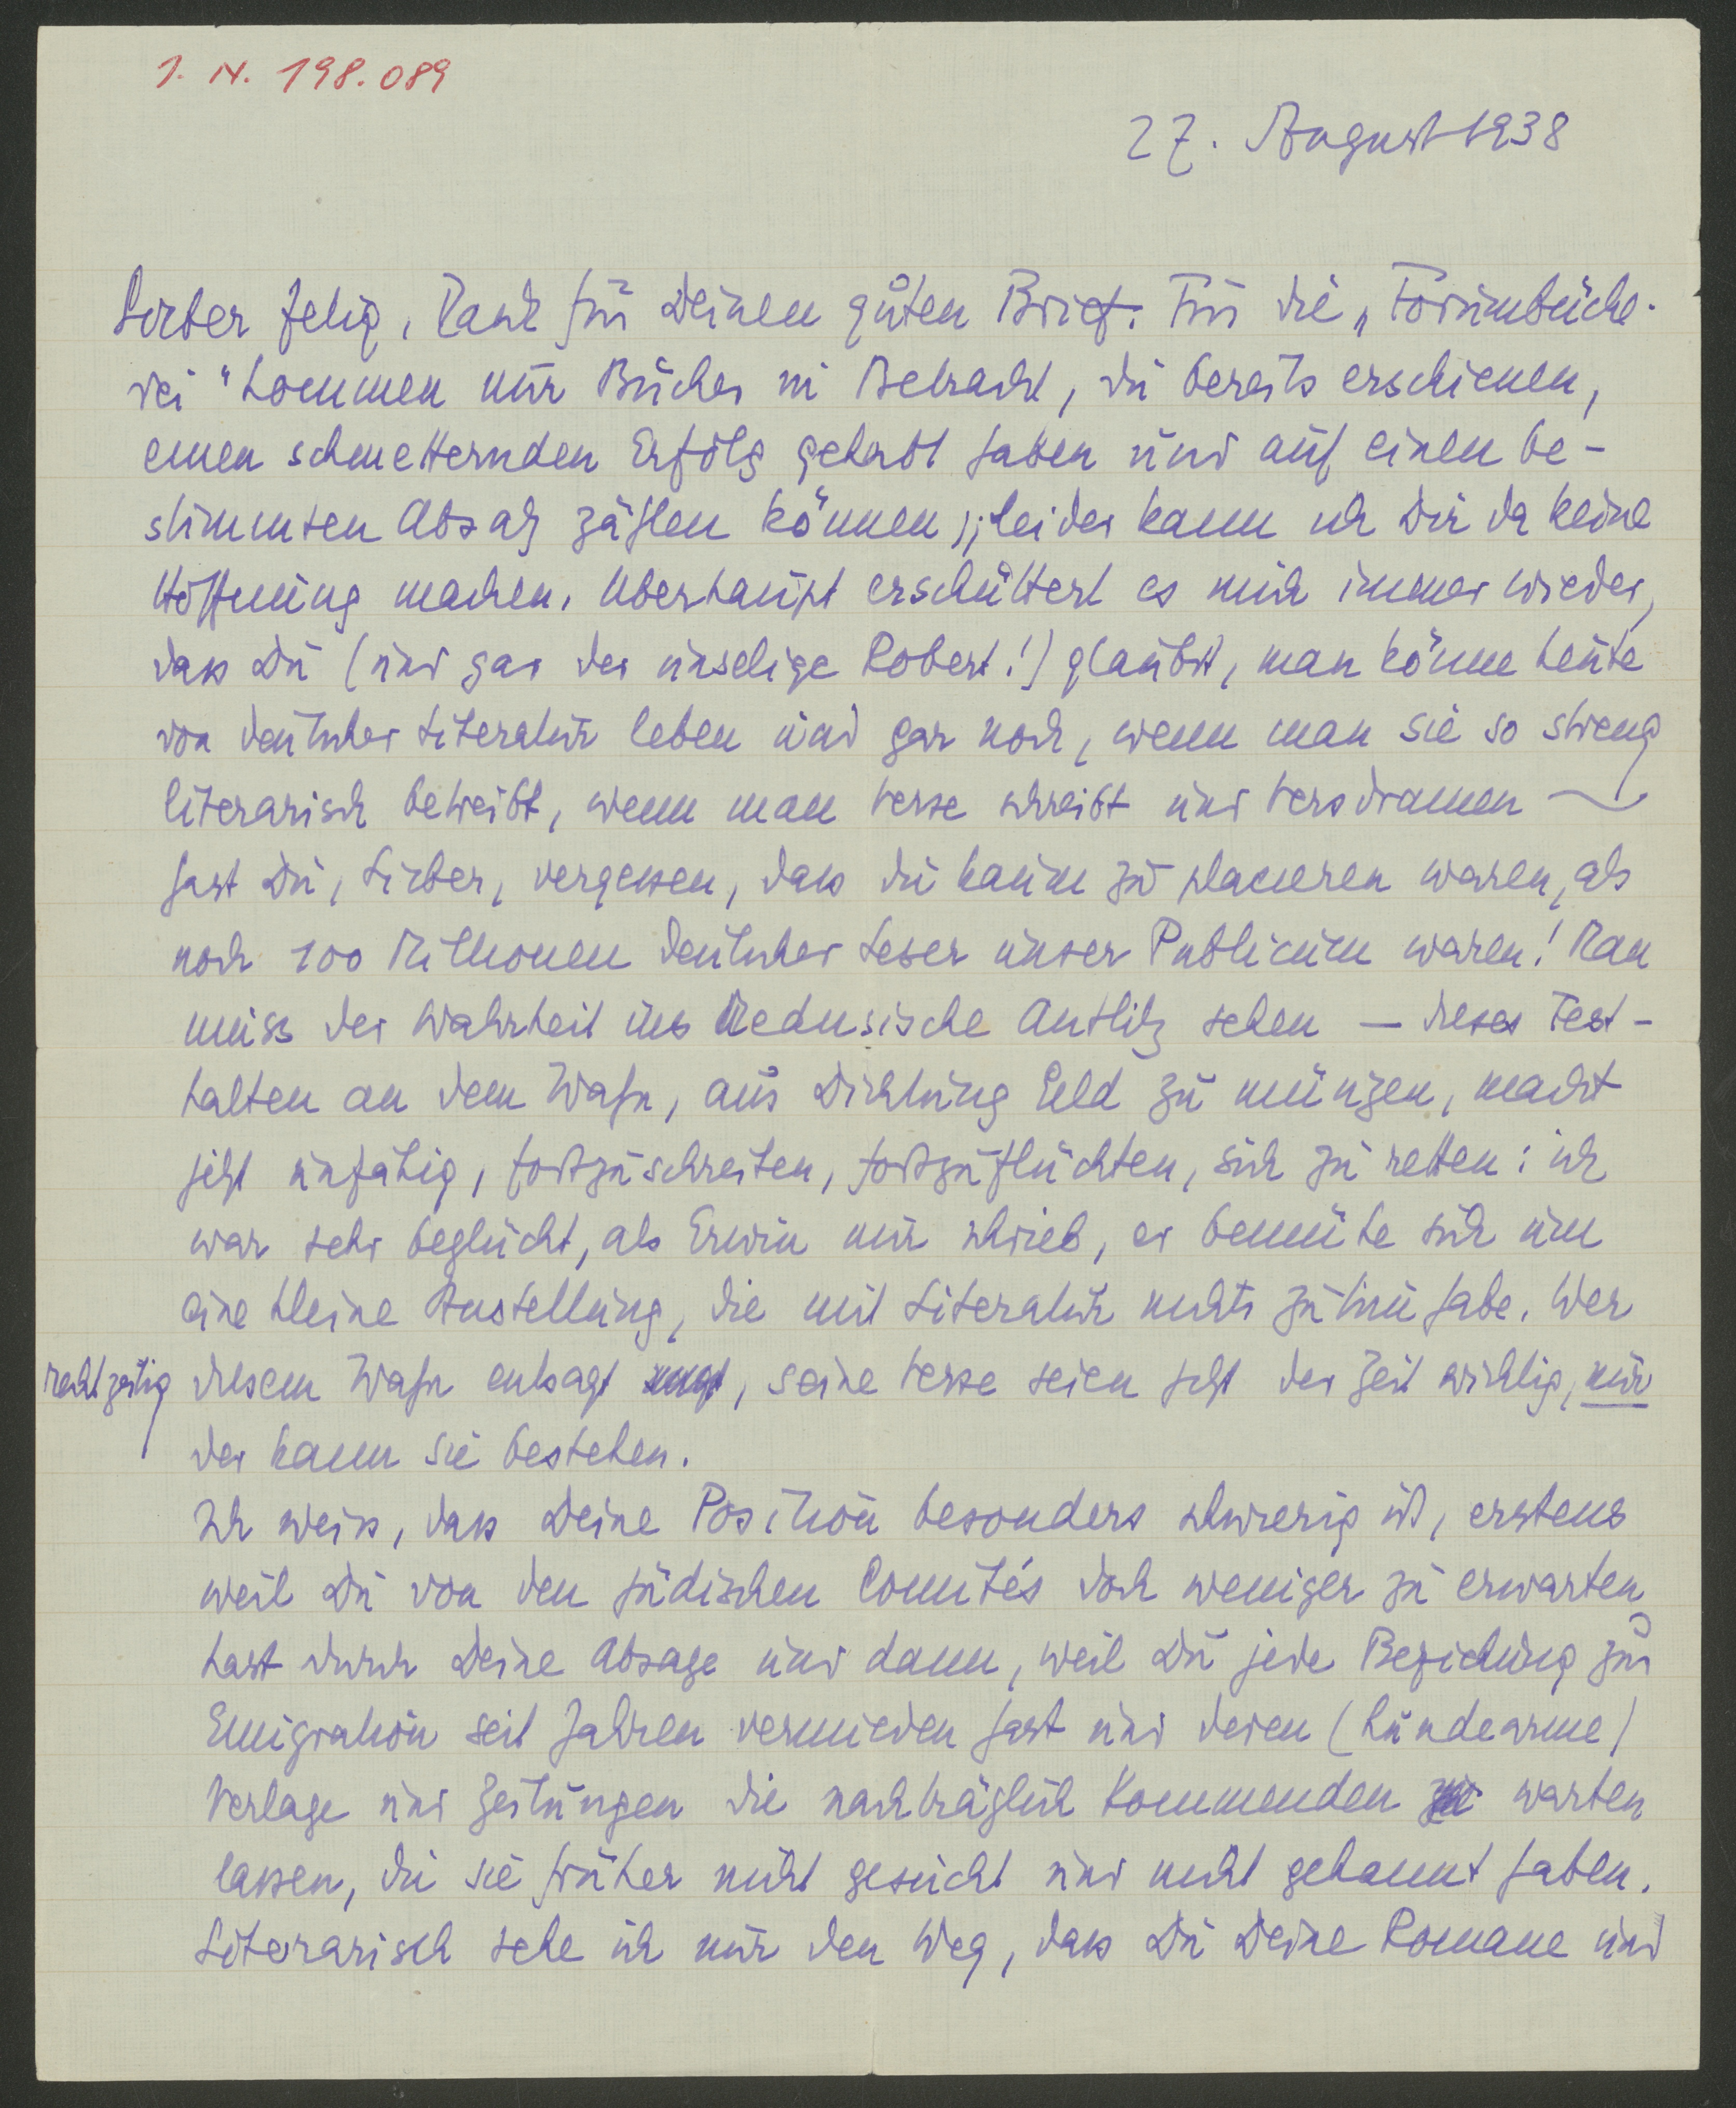 I. N. 198.089
27. August 1938
Lieber Felix, Dank für Deinen guten Brief. Für die „Forumbüche-
rei" kommen nur Bücher in Betracht, die bereits erschienen,
einen schmetternden Erfolg gehabt haben und auf einen be-
stimmten Absatz zählen können; leider kann ich Dir da keine
Hoffnung machen. Überhaupt erschüttert es mich immer wieder,
dass Du (und gar der unselige Robert!) glaubst, man könne heute
von deutscher Literatur leben und gar noch, wenn man sie so streng
literarisch betreibt, wenn man Verse schreibt und Versdramen –
hast Du, Lieber, vergessen, dass die kaum zu placieren waren, als
noch 100 Millionen deutscher Leser unser Publicum waren! Man
muss der Wahrheit ins Medusische Antlitz sehen — dieses Fest-
halten an dem Wahn, aus Dichtung Geld zu münzen, macht
jetzt unfähig, fortzuschreiten, fortzuflüchten, sich zu retten: ich
war sehr beglückt, als Erwin mir schrieb, er bemühe sich um
eine kleine Anstellung, die mit Literatur nichts zu tun habe. Wer
rechtzeitig diesem Wahn entsagt, seine Verse seien jetzt der Zeit wichtig, nur
der kann sie bestehen.
Ich weiss, dass Deine Position besonders schwierig ist, erstens
weil Du von den jüdischen Comités doch weniger zu erwarten
hast durch Deine Absage und dann, weil Du jede Beziehung zur
Emigration seit Jahren vermieden hast und deren (hundearme)
Verlage und Zeitungen die nachträglich Kommenden warten
lassen, die sie früher nicht gesucht und nicht gekannt haben.
Literarisch sehe ich nur den Weg, dass Du Deine Romane und